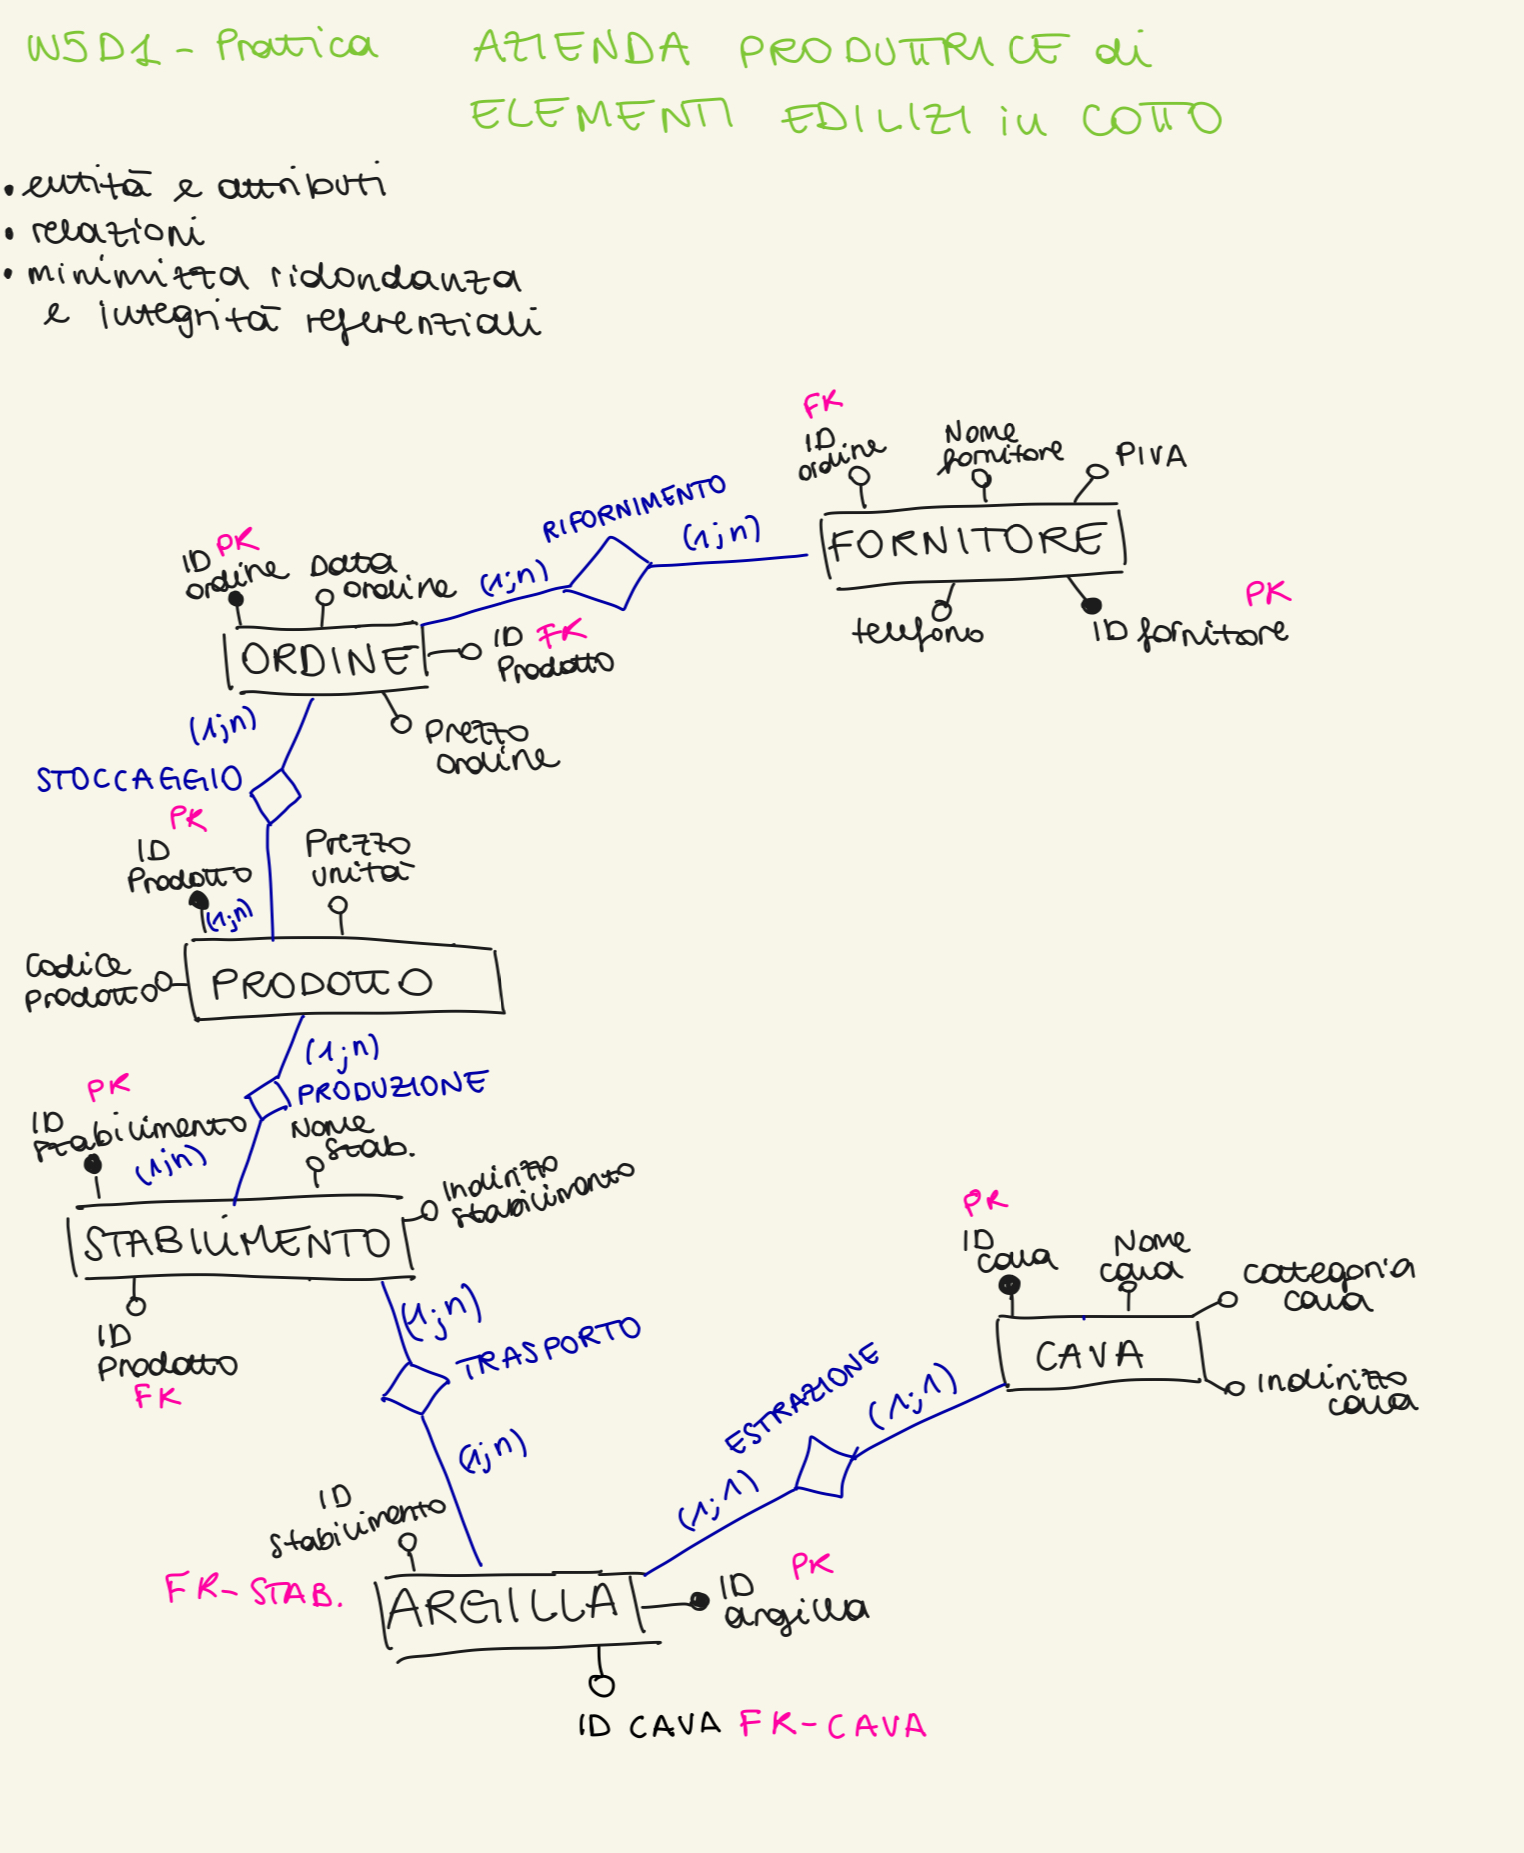 W5D1 - Pratica
AZIENDA PRODUTTRICE di
ELEMENTI EDILIZI in COTTO
• entità e attributi
• relazioni
• minimizza ridondanza
e integrità referenziali
FK
ID
ordine
Nome
fornitore
PIVA
FORNITORE
telefono
PK
ID fornitore
RIFORNIMENTO
(1;n)
(1;n)
PK
ID
ordine
Data
ordine
ORDINE
ID FK
Prodotto
Prezzo
ordine
(1;n)
STOCCAGGIO
PK
ID
Prodotto
(1;n)
Prezzo
unità
Codice
prodotto
PRODOTTO
(1;n)
PRODUZIONE
PK
ID
stabilimento
(1;n)
Nome
stab.
Indirizzo
stabilimento
STABILIMENTO
ID
Prodotto
FK
(1;n)
TRASPORTO
(1;n)
PK
ID
cava
Nome
cava
categoria
cava
CAVA
Indirizzo
cava
ESTRAZIONE
(1;1)
(1;1)
ID
stabilimento
FK-STAB.
ARGILLA
PK
ID
argilla
ID CAVA FK-CAVA